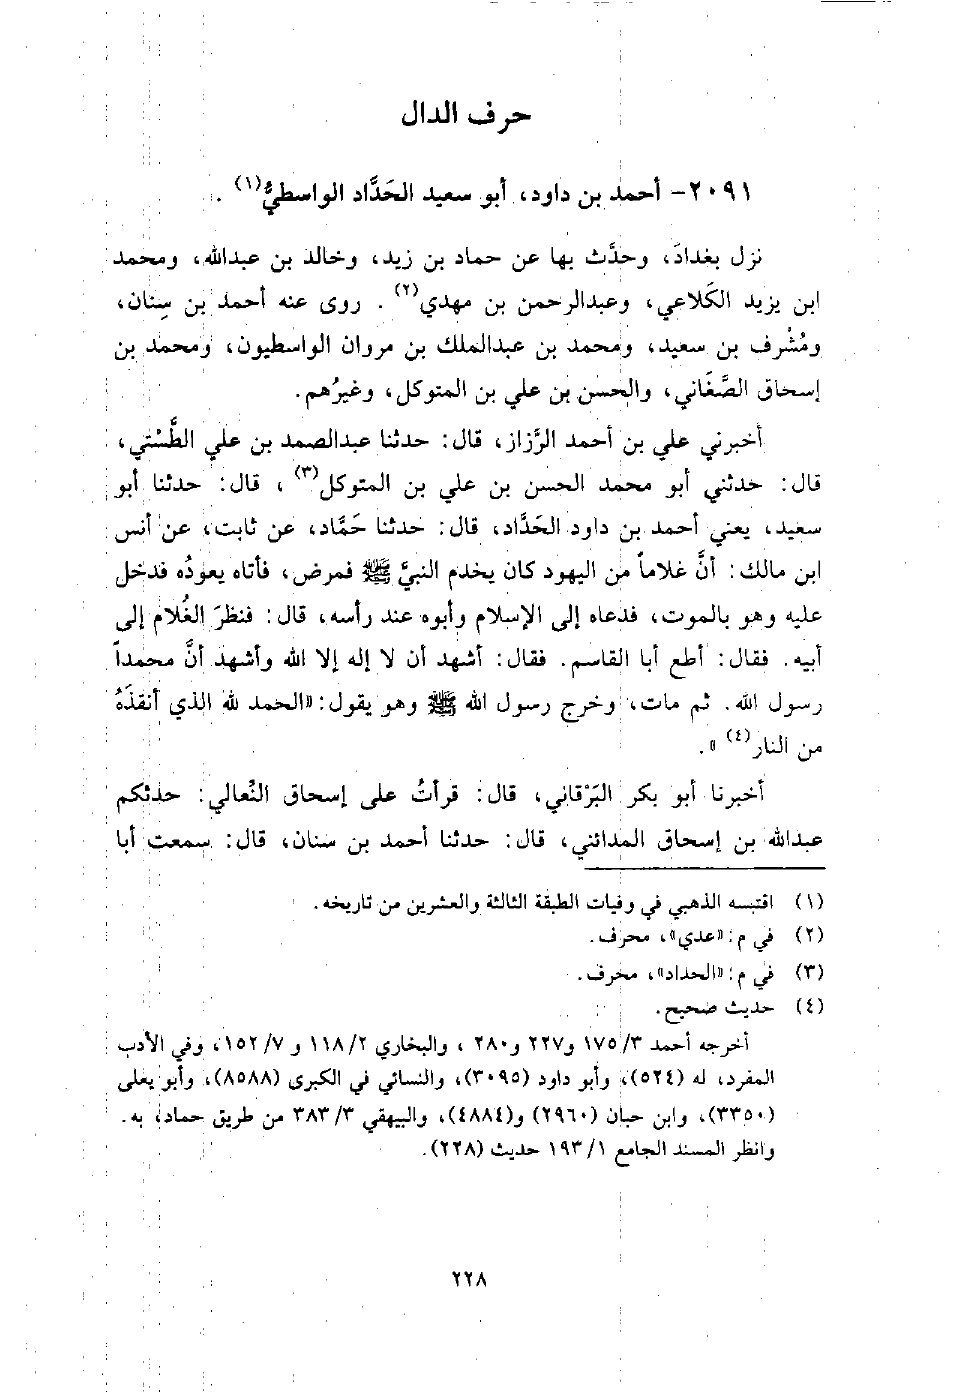 حرف الدال
٢٠٩١- أحمد بن داود، أبو سعيد الحَدَّاد الواسطيُّ(١) .
نزل بغدادَ، وحدَّث بها عن حماد بن زيد، وخالد بن عبدالله، ومحمد
ابن يزيد الكَلاعي، وعبدالرحمن بن مهدي(٢) . روى عنه أحمد بن سِنان،
ومُشْرف بن سعيد، ومحمد بن عبدالملك بن مروان الواسطيون، ومحمد بن
إسحاق الصَّغَاني، والحسن بن علي بن المتوكل، وغيرُهم.
أخبرني علي بن أحمد الرَّزاز، قال: حدثنا عبدالصمد بن علي الطَّسْتي،
قال: حدثني أبو محمد الحسن بن علي بن المتوكل(٣) ، قال: حدثنا أبو
سعيد، يعني أحمد بن داود الحَدَّاد، قال: حدثنا حَمَّاد، عن ثابت، عن أنس
ابن مالك: أنَّ غلاماً من اليهود كان يخدم النبيَّ ﷺ فمرض، فأتاه يعودُه فدخل
عليه وهو بالموت، فدعاه إلى الإسلام وأبوه عند رأسه، قال: فنظرَ الغُلام إلى
أبيه. فقال: أطع أبا القاسم. فقال: أشهد أن لا إله إلا الله وأشهد أنَّ محمداً
رسول الله. ثم مات، وخرج رسول الله ﷺ وهو يقول: «الحمد لله الذي أنقذَهُ
من النار(٤) ».
أخبرنا أبو بكر البَرْقاني، قال: قرأتُ على إسحاق النُعالي: حدثكم
عبدالله بن إسحاق المدائني، قال: حدثنا أحمد بن سنان، قال: سمعت أبا
(١) اقتبسه الذهبي في وفيات الطبقة الثالثة والعشرين من تاريخه.
(٢) في م: «عدي»، محرف.
(٣) في م: «الحداد»، محرف.
(٤) حديث صحيح.
أخرجه أحمد ٣/ ١٧٥ و٢٢٧ و٢٨٠ ، والبخاري ٢/ ١١٨ و ٧/ ١٥٢، وفي الأدب
المفرد، له (٥٢٤)، وأبو داود (٣٠٩٥)، والنسائي في الكبرى (٨٥٨٨)، وأبو يعلى
(٣٣٥٠)، وابن حبان (٢٩٦٠) و(٤٨٨٤)، والبيهقي ٣/ ٣٨٣ من طريق حماد، به.
وانظر المسند الجامع ١/ ١٩٣ حديث (٢٢٨).
٢٢٨